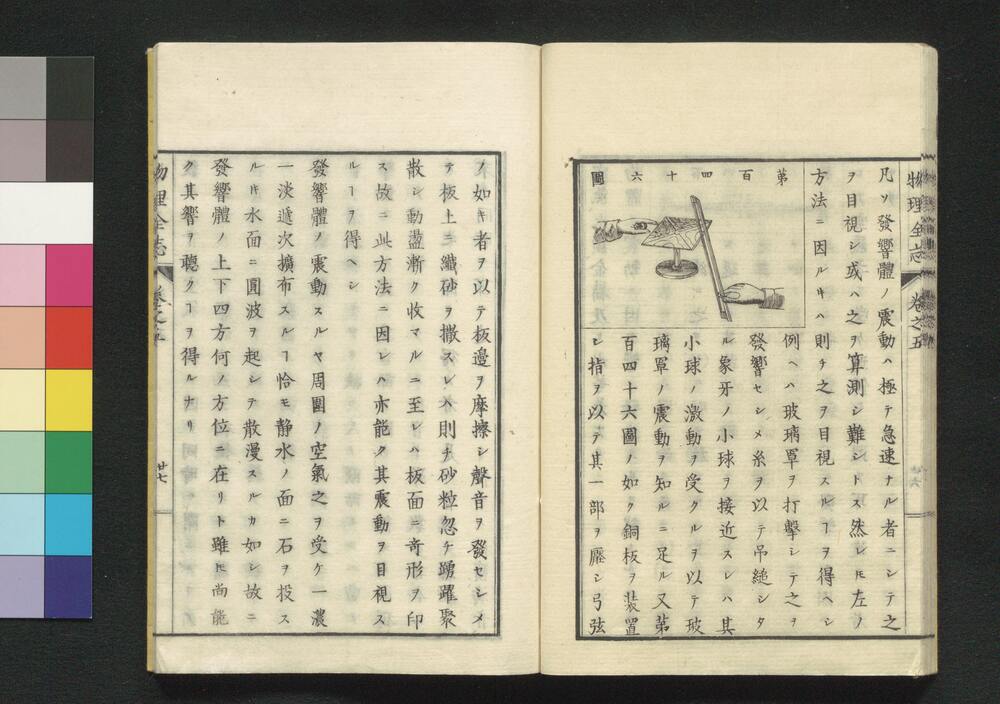 物理全志
卷之五
凡ソ發響體ノ震動ハ極テ急速ナル者ニシテ之
ヲ目視シ或ハ之ヲ算測シ難シトス然レ𪜈左ノ
方法ニ因ルキハ則チ之ヲ目視スルヿヲ得ヘシ
第百四十六圖
例ヘハ玻璃罩ヲ打擊シテ之ヲ
發響セシメ糸ヲ以テ吊縋シタ
ル象牙ノ小球ヲ接近スレハ其
小球ノ激動ヲ受クルヲ以テ玻
璃罩ノ震動ヲ知ルニ足ル又第
百四十六圖ノ如ク銅板ヲ裝置
シ指ヲ以テ其一部ヲ壓シ弓弦
ノ如キ者ヲ以テ板邊ヲ摩擦シ聲音ヲ發セシメ
テ板上ニ纖砂ヲ撒スレハ則チ砂粒忽チ踴躍聚
散シ動盪漸ク收マルニ至レハ板面ニ奇形ヲ印
ス故ニ此方法ニ因レハ亦能ク其震動ヲ目視ス
ルヿヲ得ヘシ
發響體ノ震動スルヤ周圍ノ空氣之ヲ受ケ一濃
一淡遞次擴布スルヿ恰モ静水ノ面ニ石ヲ投ス
ルキ水面ニ圓波ヲ起シテ散漫スルカ如シ故ニ
發響體ノ上下四方何ノ方位ニ在リト雖𪜈尚能
ク其響ヲ聽クヿヲ得ルナリ
物理全志
卷之五
廿七